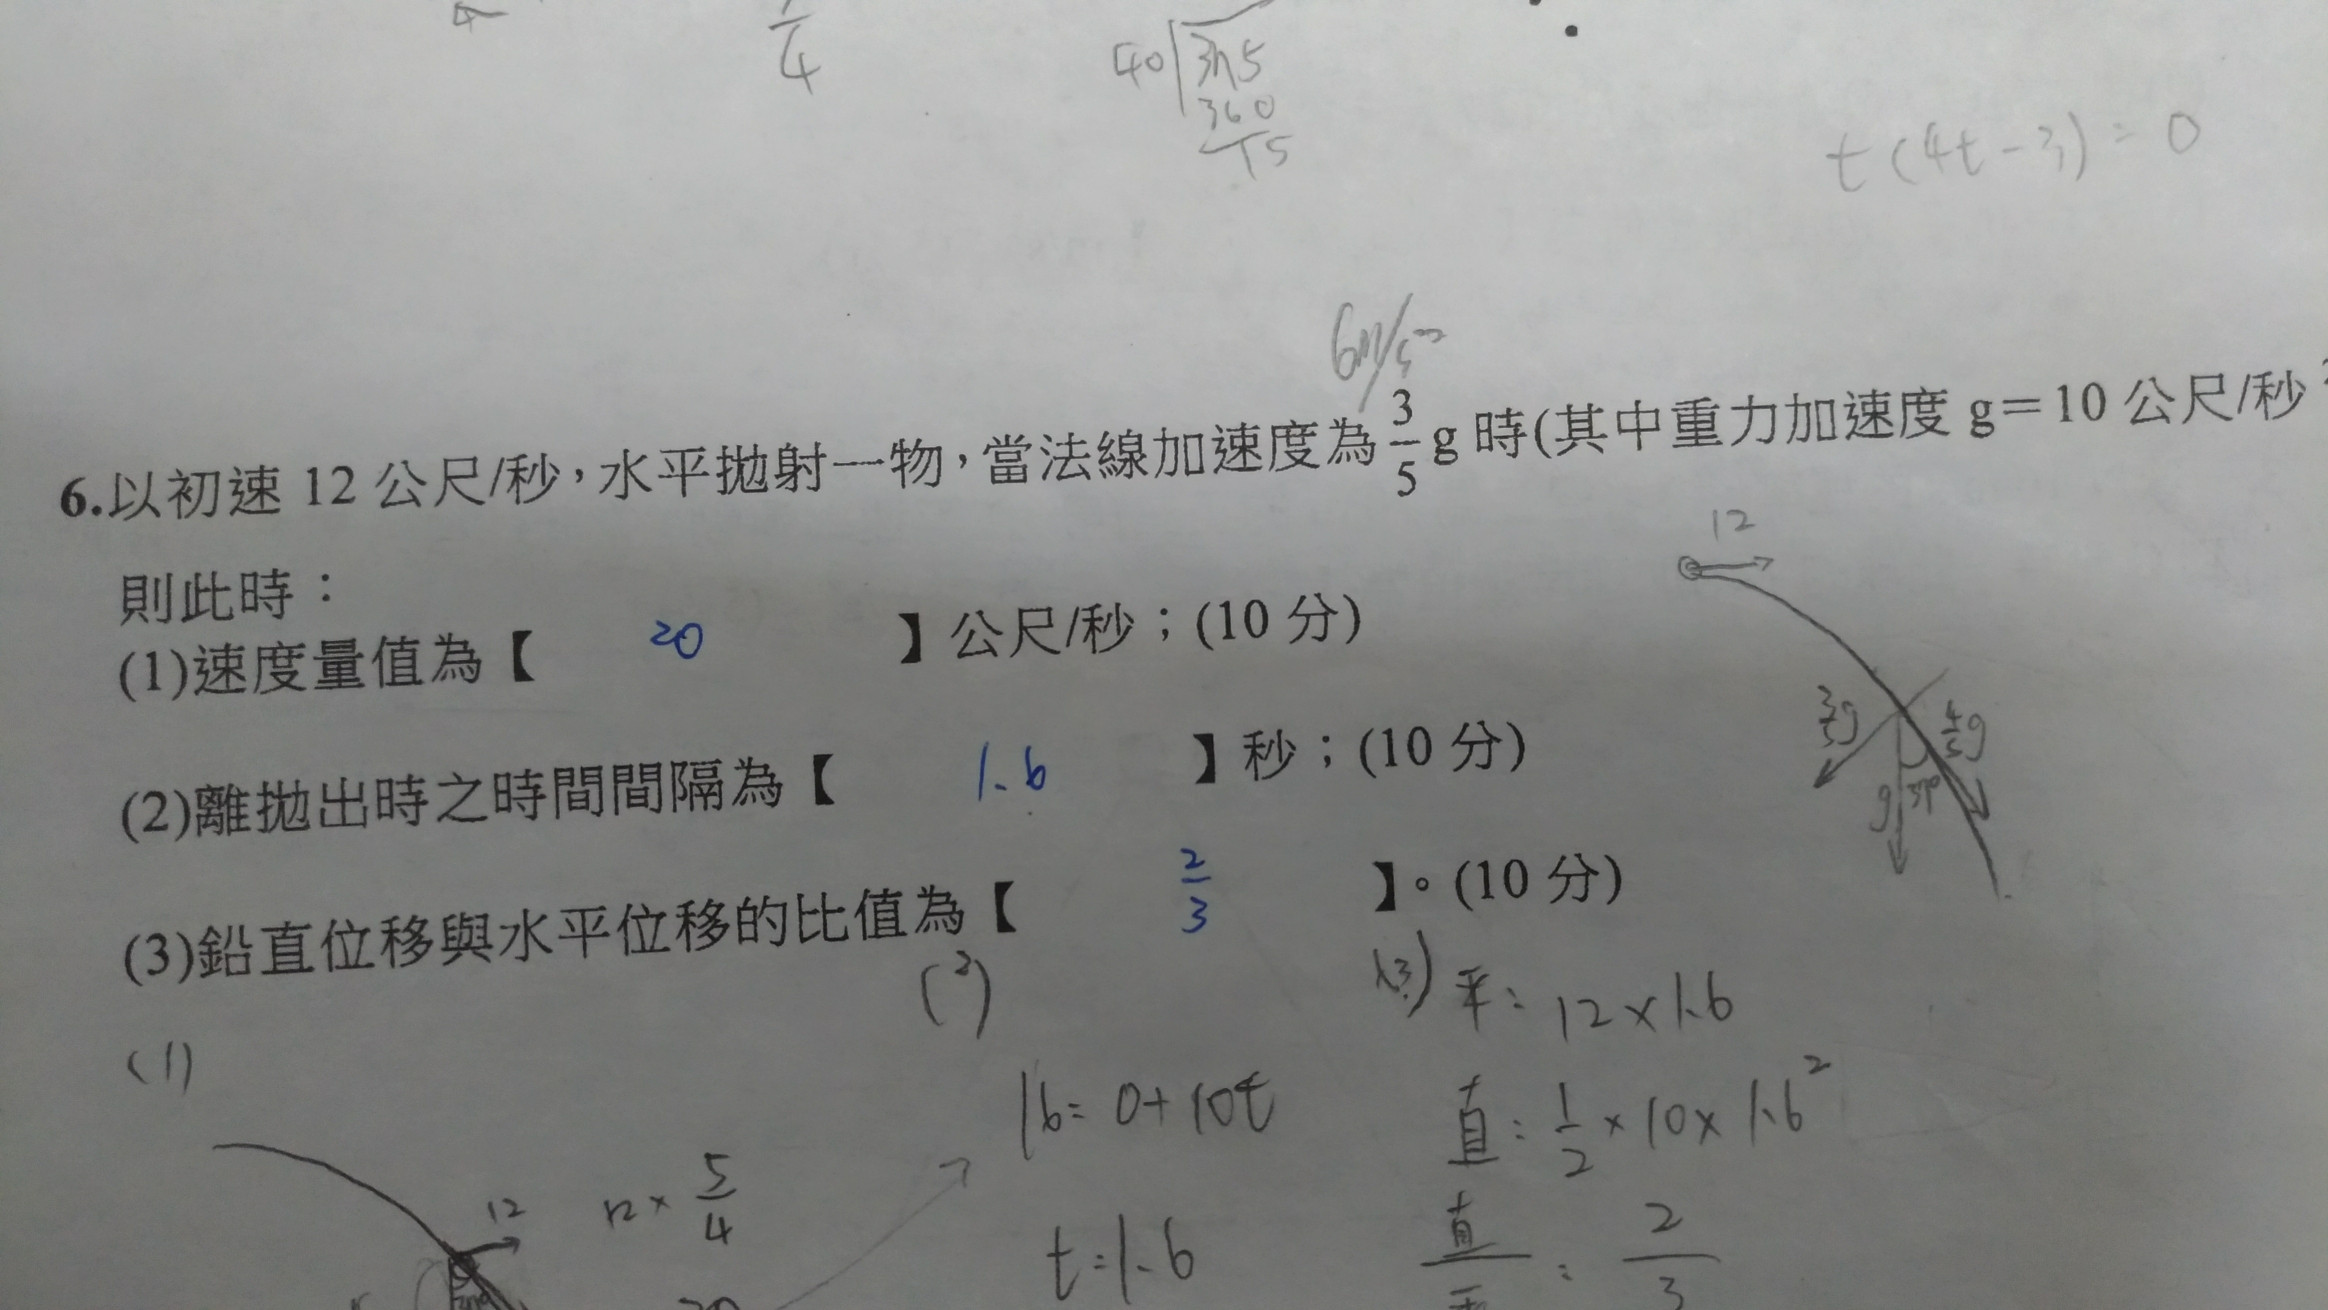 1/4
40 375
360
15
t(4t-3)=0
6m/s²
6.以初速 12 公尺/秒，水平拋射一物，當法線加速度為 3/5 g 時(其中重力加速度 g＝10 公尺/秒²
12
則此時：
(1)速度量值為【 20 】公尺/秒；(10 分)
(2)離拋出時之時間間隔為【 1.6 】秒；(10 分)
3/5 g
4/5 g
g 37°
(3)鉛直位移與水平位移的比值為【 2/3 】。(10 分)
(1)
(2)
(3) 平：12×1.6
16=0+10t
直：1/2×10×1.6²
12
12×5/4
t=1.6
直/平：2/3
20